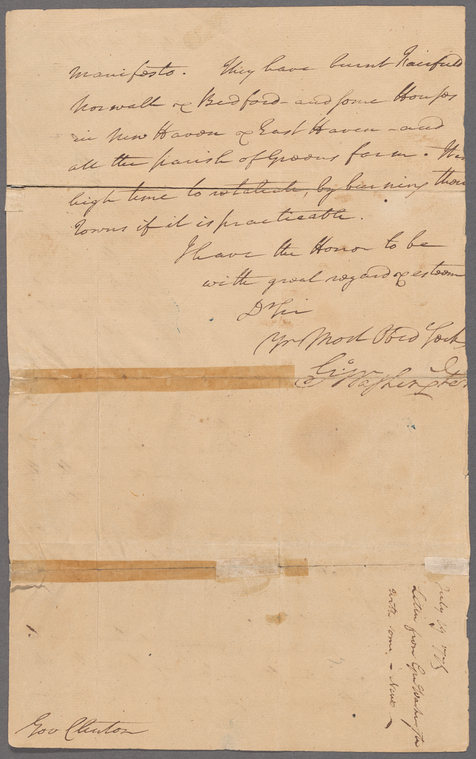 manifesto. They have burnt Fairfield
Norwalk & Bedford - and some Houses
in New Haven & East Haven - and
all the parish of Greens farm.
high time to retaliate, by burning their
Towns if it is practicable.
I have the Honor to be
with great regard & esteem
Dr Sir
Yr Most Obed
Go Washington
July 19
Letter from Genl Washington
with some - News
Gov Clinton